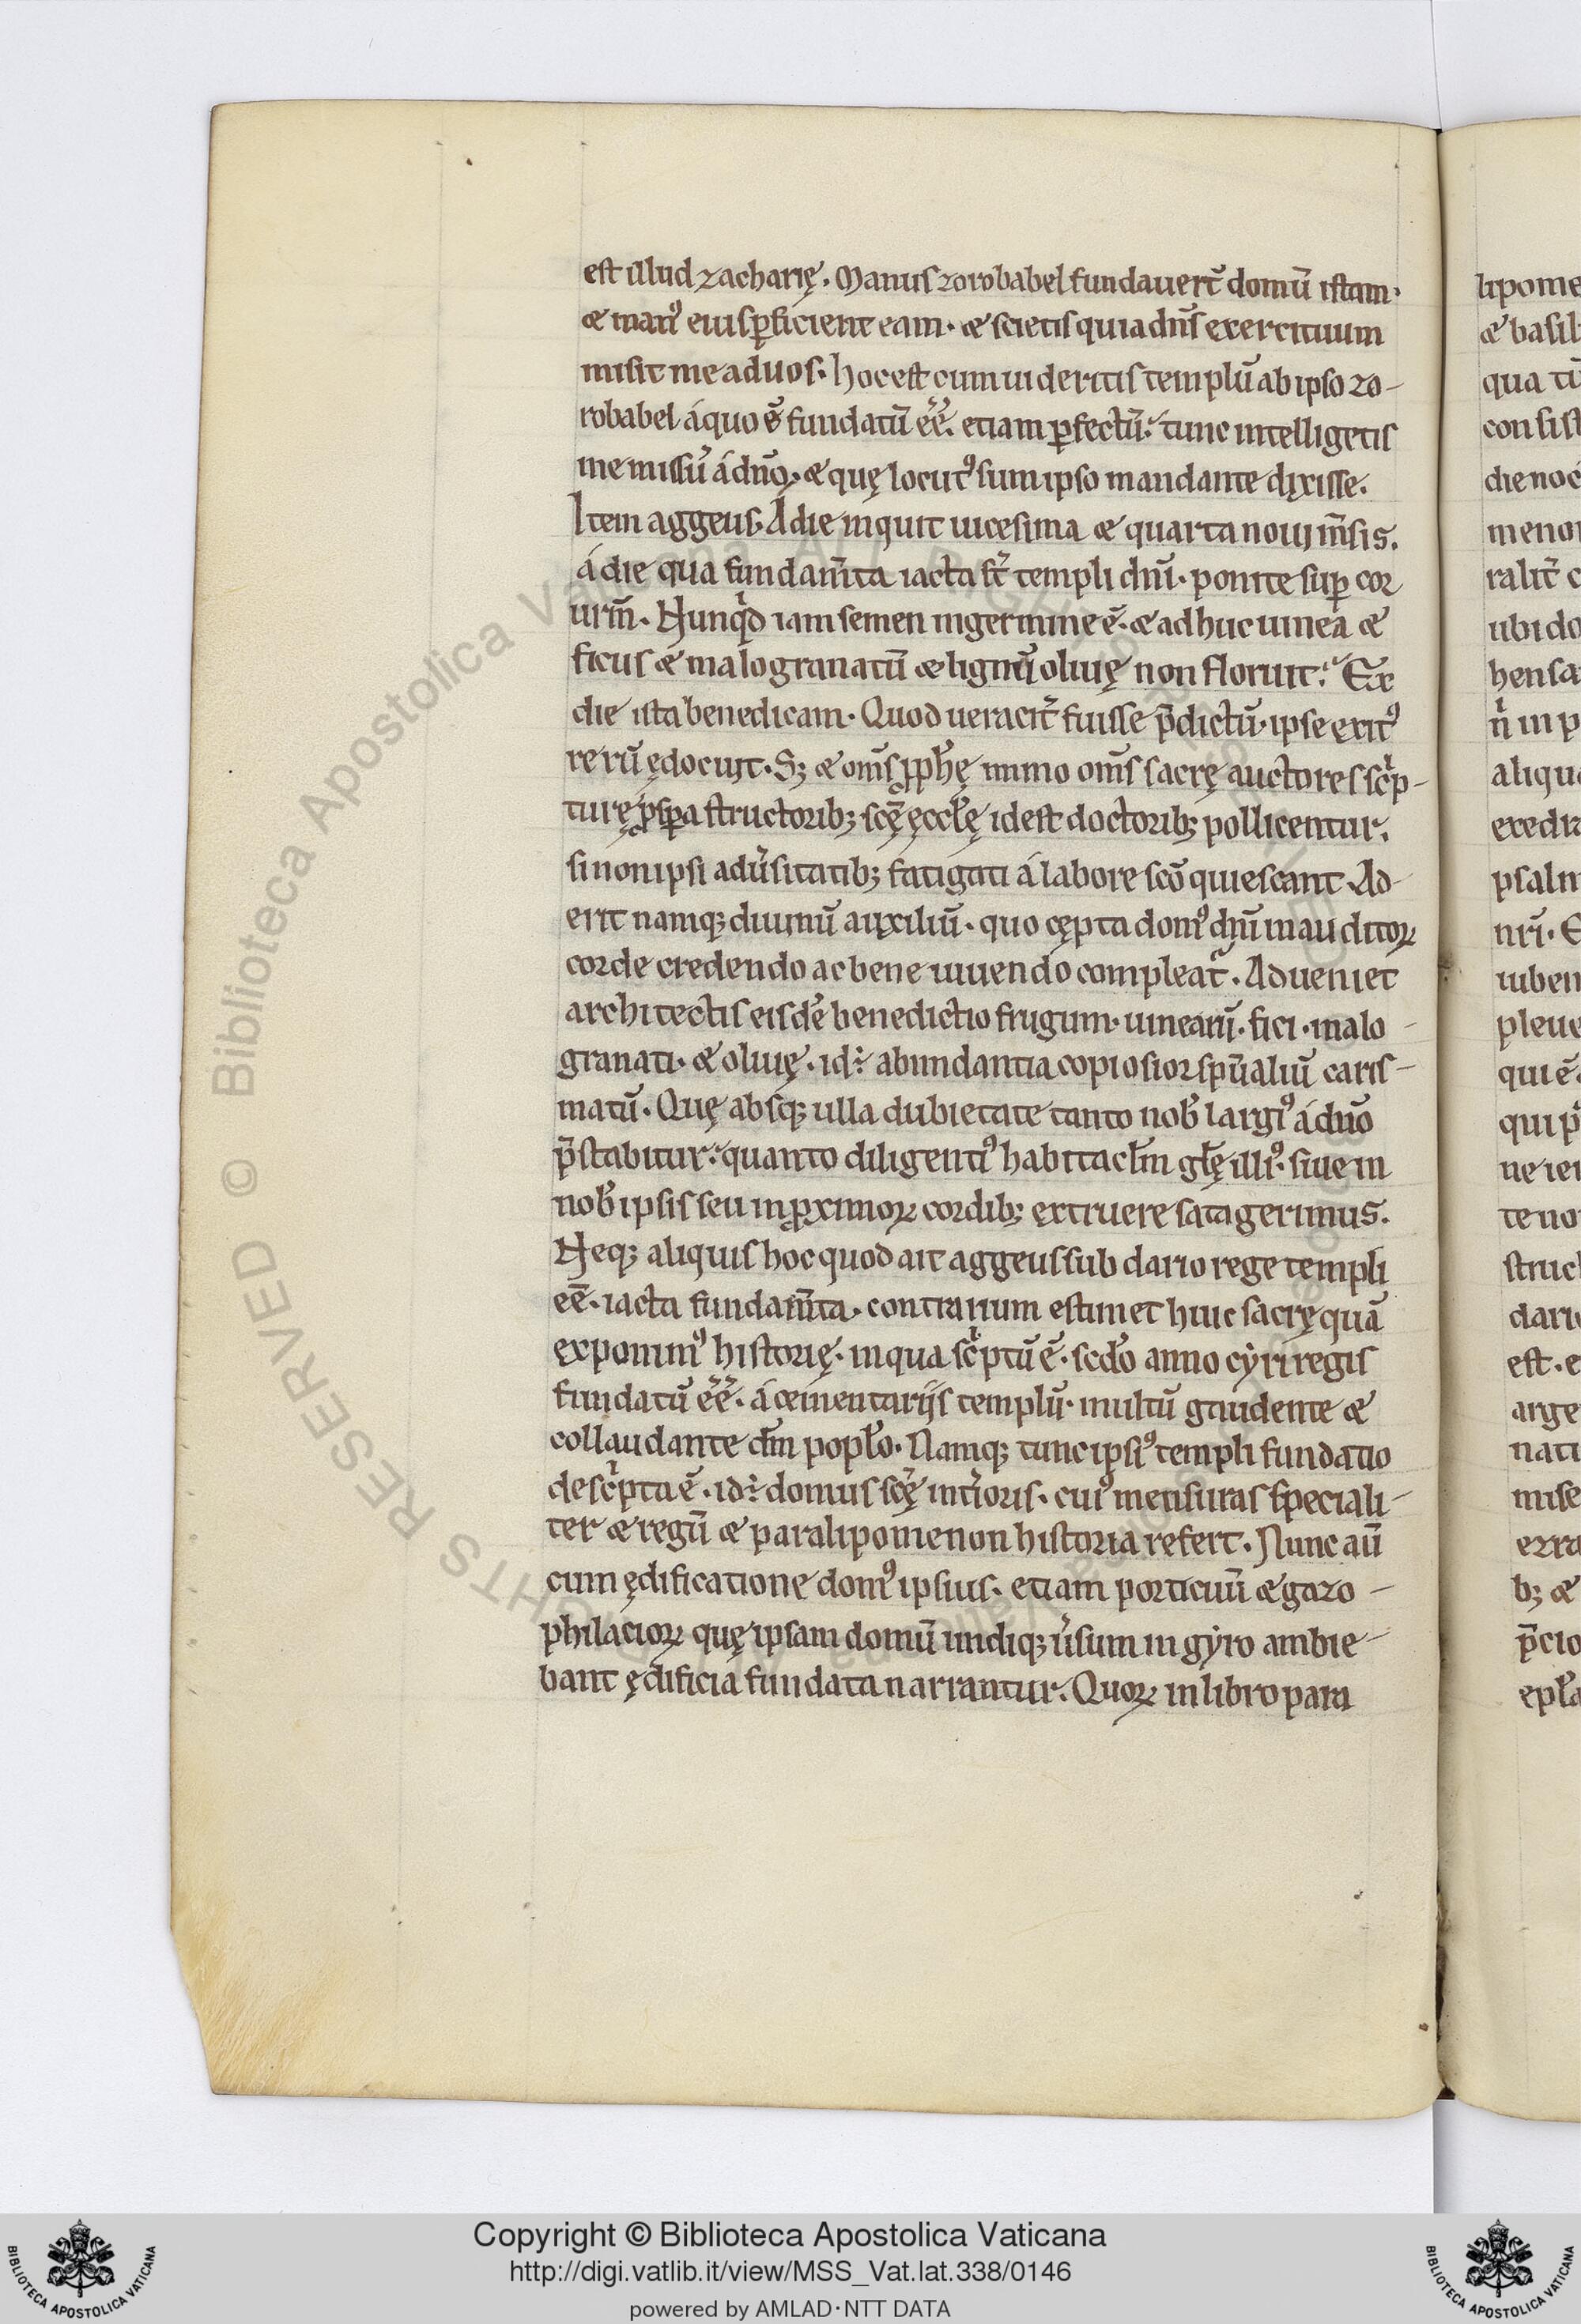 est illud zacharię. Manus zorobabel fundauert̄ domū istam.
& man⁹ eius ꝑficient eam. & scietis quia dn̄s exercituum
misit me ad uos. hoc est cum uideritis templū ab ipso zo-
robabel á quo ē fundatū eē. etiam ꝑfectū. tunc intelligetis
me missū á dn̄o. & quę locut⁹ sum ipso mandante dixisse.
Item aggeus. A die inquit uicesima & quarta noui m̄sis.
á die qua fundam̄ta iacta st̄ templi dn̄i. ponite suꝑ cor
urm̄. Nunqd iam semen in germine ē. & adhuc uinea &
ficus & malogranatū & lignū oliuę non floruit. Ex
die ista benedicam. Quod ueracit̄ fuisse p̄dictū. ipse exit⁹
rerū ędocuit. S; & om̄s ꝓph̄ę immo om̄s sacrę auctores sc̄p-
turę ꝓsꝑa structorib; sc̄ę ęccl̄ę idest doctorib; pollicentur.
si non ipsi adūsitatib; fatigati á labore sc̄o quiescant. Ad-
erit namq; diuinū auxiliū. quo cępta dom⁹ dn̄i in auditoꝝ
corde credendo ac bene uiuendo compleat̄. Adueniet
architectis eisdē benedictio frugum. uinearū. fici. malo-
granati. & oliuę. id÷ abundantia copiosior spūaliū caris-
matū. Quę absq; ulla dubietate tanto nob̄ largi⁹ á dn̄o
p̄stabitur. quanto diligenti⁹ habitacl̄m gl̄ę illi⁹. siue in
nob̄ ipsis seu in ꝓximoꝝ cordib; extruere satagerimus.
Neq; aliquis hoc quod ait aggeus sub dario rege templi
eē. iacta fundam̄ta. contrarium estimet huic sacrę quā
exponim⁹ historię. in qua sc̄ptū ē. scdo anno cẏri regis
fundatū eē. á cementarijs templū. multū gaudente &
collaudante dm̄ popl̄o. Namq; tunc ipsi⁹ templi fundatio
desc̄pta ē. id÷ domus sc̄ę int̄ioris. cui⁹ mensuras speciali-
ter & regū & paralipomenon historia refert. Nunc aū
cum ędificatione dom⁹ ipsius. etiam porticuū & gazo-
philacioꝝ quę ipsam domū undiq; ūsum in gẏro ambie-
bant ędificia fundata narrantur. Quoꝝ in libro para
lipome
& basil
qua
consist
die noc
menor
ralit̄ c
ubi do
hensa
in p
aliqua
exedra
psalm
nrī. E
iuben
pleue
qui ē
qui p
ne ier
te no
struct
dari
est. e
arge
nati
mise
ezra
b; &
p̄cio
epl̄a
© Biblioteca Apostolica Vaticana ALL RIGHTS RESERVED
Copyright © Biblioteca Apostolica Vaticana
http://digi.vatlib.it/view/MSS_Vat.lat.338/0146
powered by AMLAD·NTT DATA
BIBLIOTECA APOSTOLICA VATICANA
BIBLIOTECA APOSTOLICA VATICANA